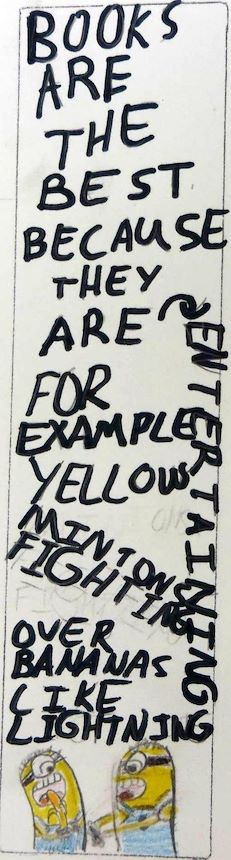 BOOKS
ARE
THE
BEST
BECAUSE
THEY
ARE
ENTERTAINING
FOR
EXAMPLE
YELLOW
MINIONS
FIGHTING
OVER
BANANAS
LIKE
LIGHTNING